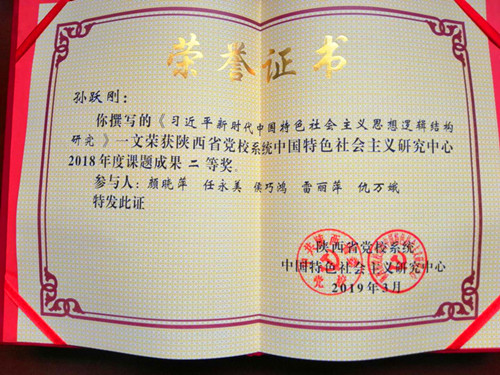 荣誉证书
孙跃刚：
你撰写的《习近平新时代中国特色社会主义思想逻辑结构
研究》一文荣获陕西省党校系统中国特色社会主义研究中心
2018年度课题成果二等奖。
参与人：颜晓萍 任永美 侯巧鸿 雷丽萍 仇万娥
特发此证
陕西省党校系统
中国特色社会主义研究中心
2019年3月